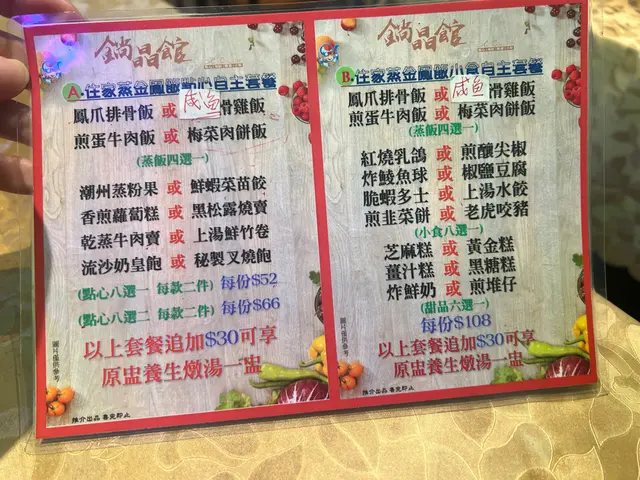 鍋晶館
A.住家蒸金鳳飯點心自主套餐
鳳爪排骨飯 或 咸鱼滑雞飯
煎蛋牛肉飯 或 梅菜肉餅飯
(蒸飯四選一)
潮州蒸粉果 或 鮮蝦菜苗餃
香煎蘿蔔糕 或 黑松露燒賣
乾蒸牛肉賣 或 上湯鮮竹卷
流沙奶皇飽 或 秘製叉燒飽
(點心八選一 每款二件) 每份$52
(點心八選二 每款二件) 每份$66
以上套餐追加$30可享
原盅養生燉湯一盅
圖片僅供參考
推介出品 售完即止
鍋晶館
B.住家蒸金鳳飯小食自主套餐
鳳爪排骨飯 或 咸鱼滑雞飯
煎蛋牛肉飯 或 梅菜肉餅飯
(蒸飯四選一)
紅燒乳鴿 或 煎釀尖椒
炸鯪魚球 或 椒鹽豆腐
脆蝦多士 或 上湯水餃
煎韭菜餅 或 老虎咬豬
(小食八選一)
芝麻糕 或 黃金糕
薑汁糕 或 黑糖糕
炸鮮奶 或 煎堆仔
(甜品六選一)
每份$108
以上套餐追加$30可享
原盅養生燉湯一盅
圖片僅供參考
推介出品 售完即止